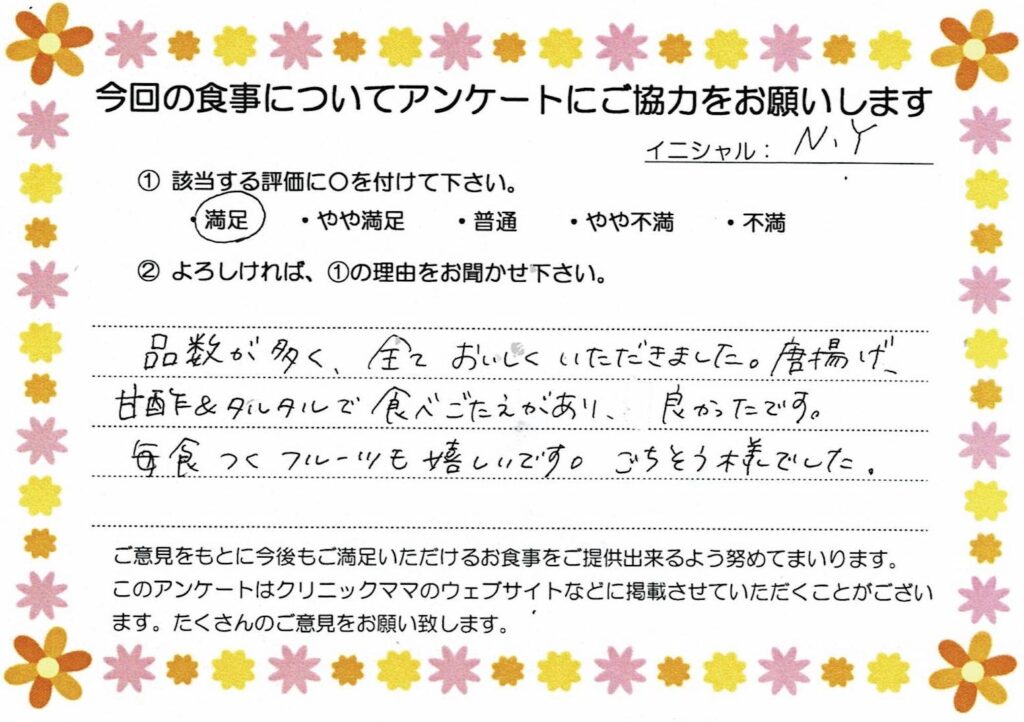 今回の食事についてアンケートにご協力をお願いします
イニシャル： N.Y
① 該当する評価に○を付けて下さい。
・満足 ・やや満足 ・普通 ・やや不満 ・不満
② よろしければ、①の理由をお聞かせ下さい。
品数が多く、全て おいしくいただきました。唐揚げ、
甘酢&タルタルで 食べごたえがあり、 良かったです。
毎食 つくフルーツも 嬉しいです。 ごちそう様でした。
ご意見をもとに今後もご満足いただけるお食事をご提供出来るよう努めてまいります。
このアンケートはクリニックママのウェブサイトなどに掲載させていただくことがござい
ます。たくさんのご意見をお願い致します。